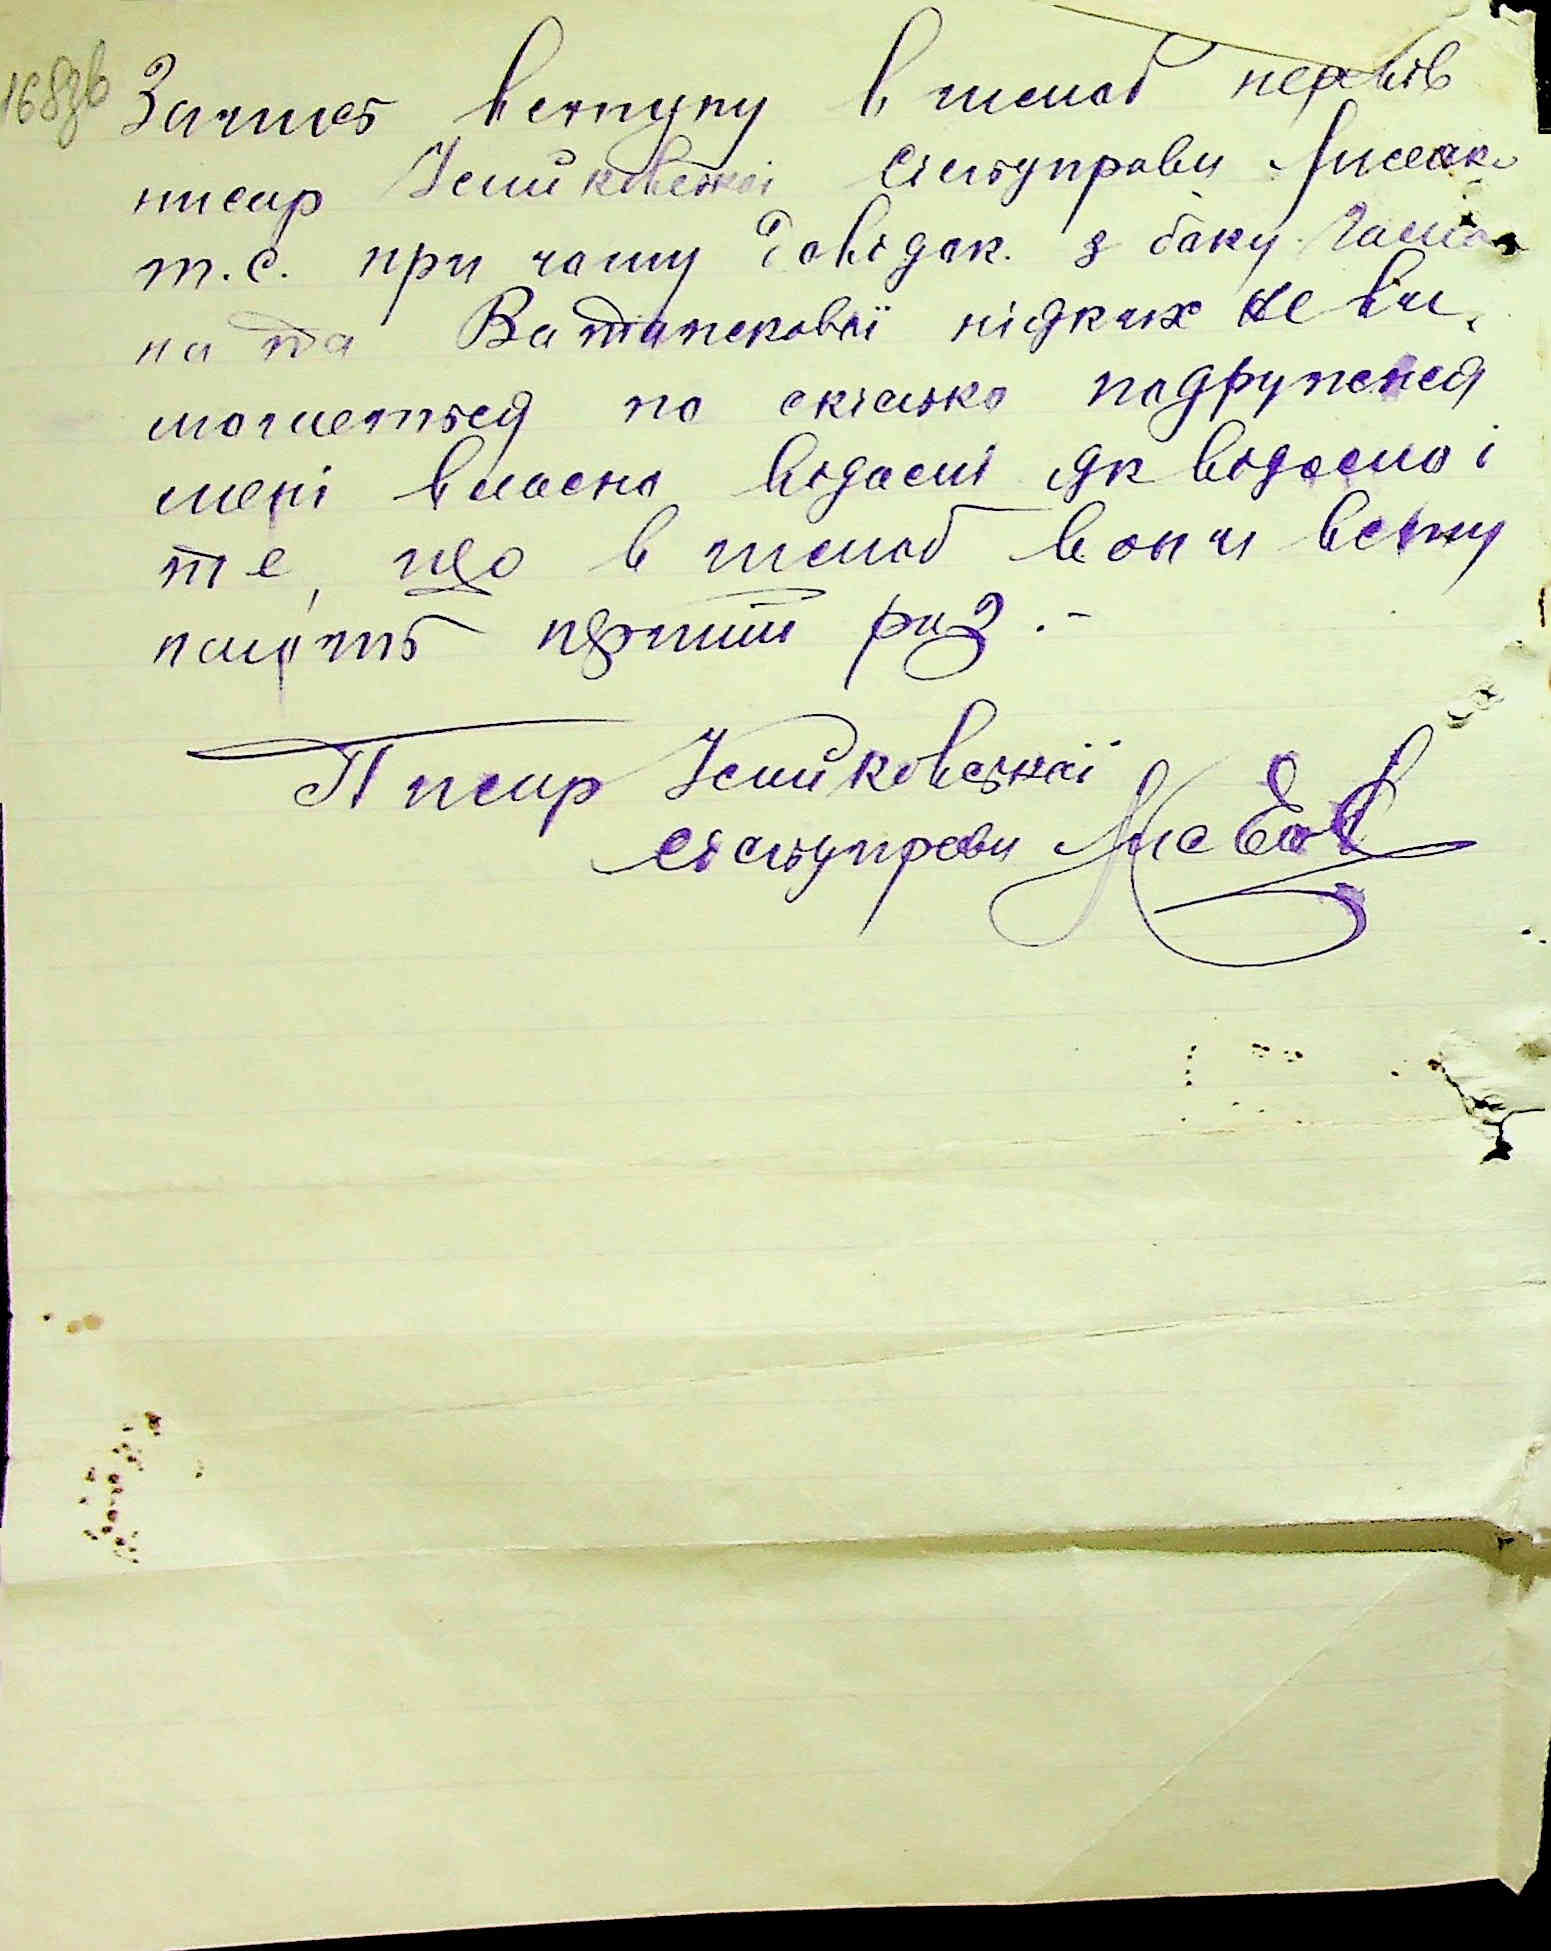 168зв
Запись вступу в шлюб перевів
писар Усиківської сільуправи Лисак
т.С. при чому довідок. з боку
на та Ватапскової ніяких не вим
могиеться по скілько подружжя
мені власно відомі як відомо і
те, що в шлюб вони всту
пають перший раз.-
Писар Усиківської
сільуправи